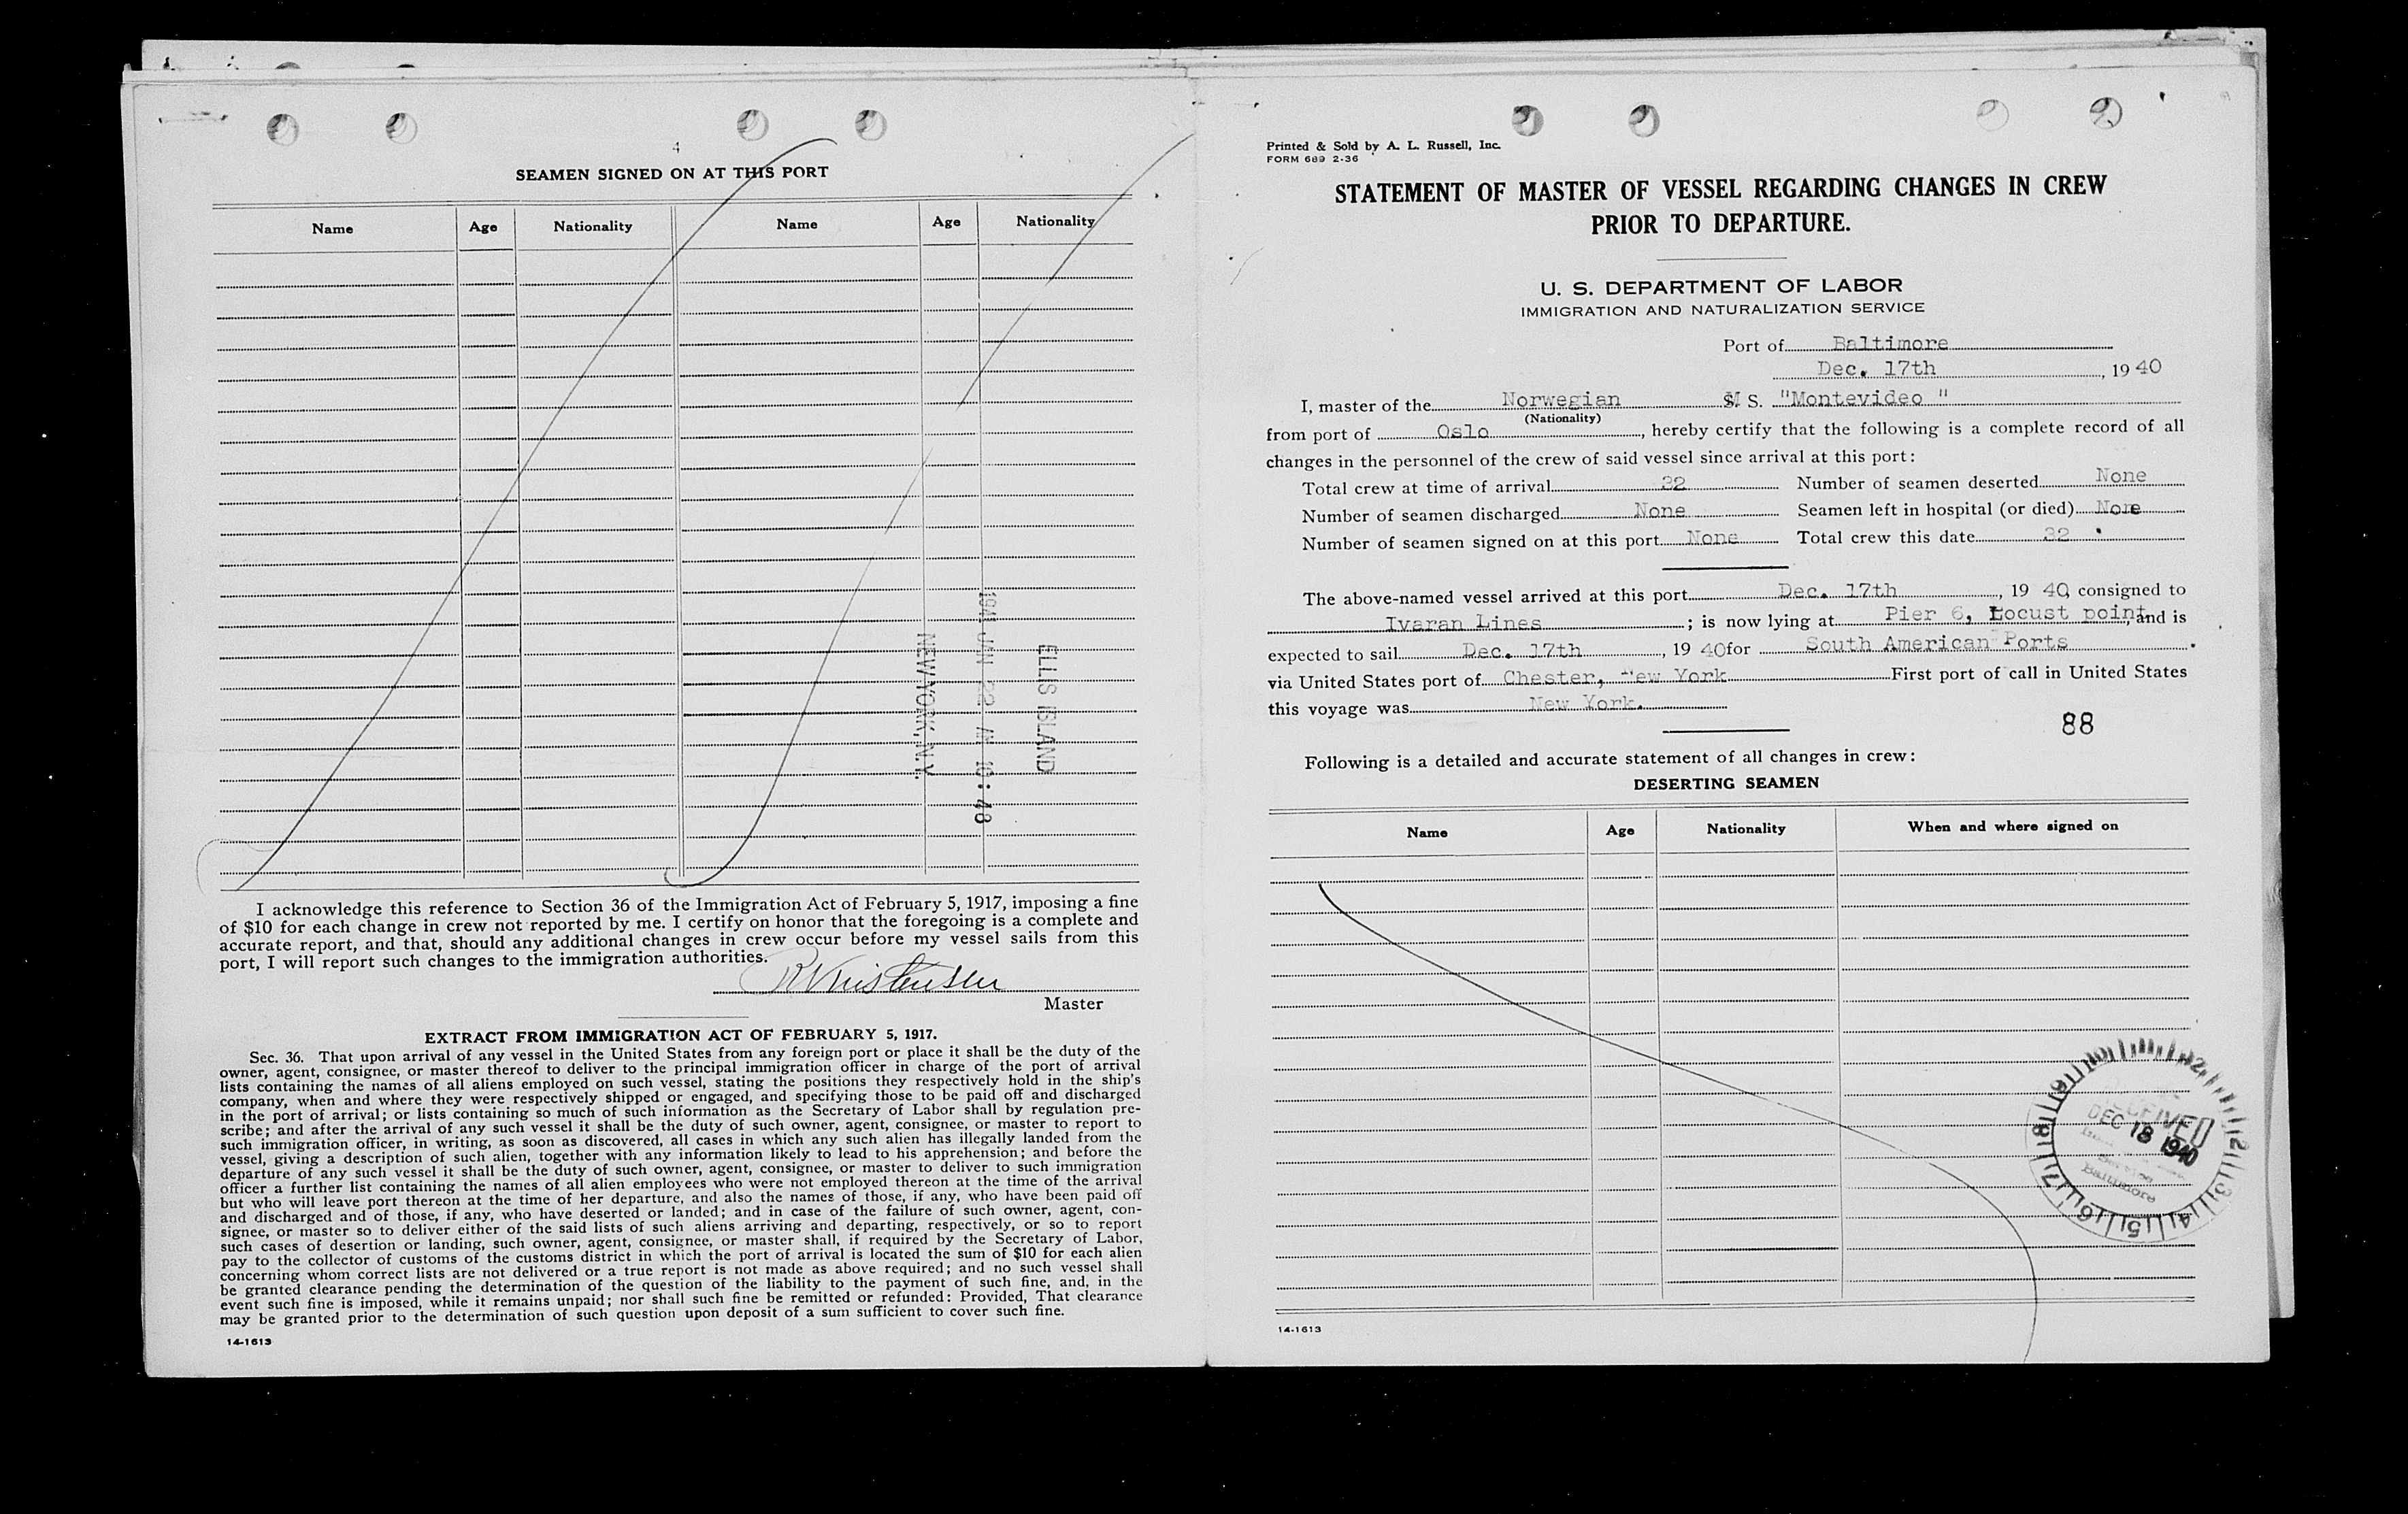 4
SEAMEN SIGNED ON AT THIS PORT
Name Age Nationality Name Age Nationality
ELLIS ISLAND
1941 JAN 22 AM 10:48
NEW YORK, N.Y.
I acknowledge this reference to Section 36 of the Immigration Act of February 5, 1917, imposing a fine
of $10 for each change in crew not reported by me. I certify on honor that the foregoing is a complete and
accurate report, and that, should any additional changes in crew occur before my vessel sails from this
port, I will report such changes to the immigration authorities.
Master
EXTRACT FROM IMMIGRATION ACT OF FEBRUARY 5, 1917.
Sec. 36. That upon arrival of any vessel in the United States from any foreign port or place it shall be the duty of the
owner, agent, consignee, or master thereof to deliver to the principal immigration officer in charge of the port of arrival
lists containing the names of all aliens employed on such vessel, stating the positions they respectively hold in the ship's
company, when and where they were respectively shipped or engaged, and specifying those to be paid off and discharged
in the port of arrival; or lists containing so much of such information as the Secretary of Labor shall by regulation pre-
scribe; and after the arrival of any such vessel it shall be the duty of such owner, agent, consignee, or master to report to
such immigration officer, in writing, as soon as discovered, all cases in which any such alien has illegally landed from the
vessel, giving a description of such alien, together with any information likely to lead to his apprehension; and before the
departure of any such vessel it shall be the duty of such owner, agent, consignee, or master to deliver to such immigration
officer a further list containing the names of all alien employees who were not employed thereon at the time of the arrival
but who will leave port thereon at the time of her departure, and also the names of those, if any, who have been paid off
and discharged and of those, if any, who have deserted or landed; and in case of the failure of such owner, agent, con-
signee, or master so to deliver either of the said lists of such aliens arriving and departing, respectively, or so to report
such cases of desertion or landing, such owner, agent, consignee, or master shall, if required by the Secretary of Labor,
pay to the collector of customs of the customs district in which the port of arrival is located the sum of $10 for each alien
concerning whom correct lists are not delivered or a true report is not made as above required; and no such vessel shall
be granted clearance pending the determination of the question of the liability to the payment of such fine, and, in the
event such fine is imposed, while it remains unpaid; nor shall such fine be remitted or refunded: Provided, That clearance
may be granted prior to the determination of such question upon deposit of a sum sufficient to cover such fine.
14-1613
Printed & Sold by A. L. Russell, Inc.
FORM 689 2-36
STATEMENT OF MASTER OF VESSEL REGARDING CHANGES IN CREW
PRIOR TO DEPARTURE.
U. S. DEPARTMENT OF LABOR
IMMIGRATION AND NATURALIZATION SERVICE
Port of Baltimore
Dec. 17th, 1940
I, master of the Norwegian M S. "Montevideo "
(Nationality)
from port of Oslo, hereby certify that the following is a complete record of all
changes in the personnel of the crew of said vessel since arrival at this port:
Total crew at time of arrival 32 Number of seamen deserted None
Number of seamen discharged None Seamen left in hospital (or died) None
Number of seamen signed on at this port None Total crew this date 32
The above-named vessel arrived at this port Dec. 17th, 19 40, consigned to
Ivaran Lines; is now lying at Pier 6, Locust point, and is
expected to sail Dec. 17th, 19 40 for South American Ports.
via United States port of Chester, New York First port of call in United States
this voyage was New York.
88
Following is a detailed and accurate statement of all changes in crew:
DESERTING SEAMEN
Name Age Nationality When and where signed on
RECEIVED
DEC 18 1940
Baltimore
14-1613